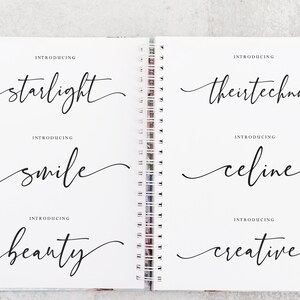 INTRODUCING
starlight
INTRODUCING
smile
INTRODUCING
beauty
INTRODUCING
theirtechn
INTRODUCING
celine
INTRODUCING
creative